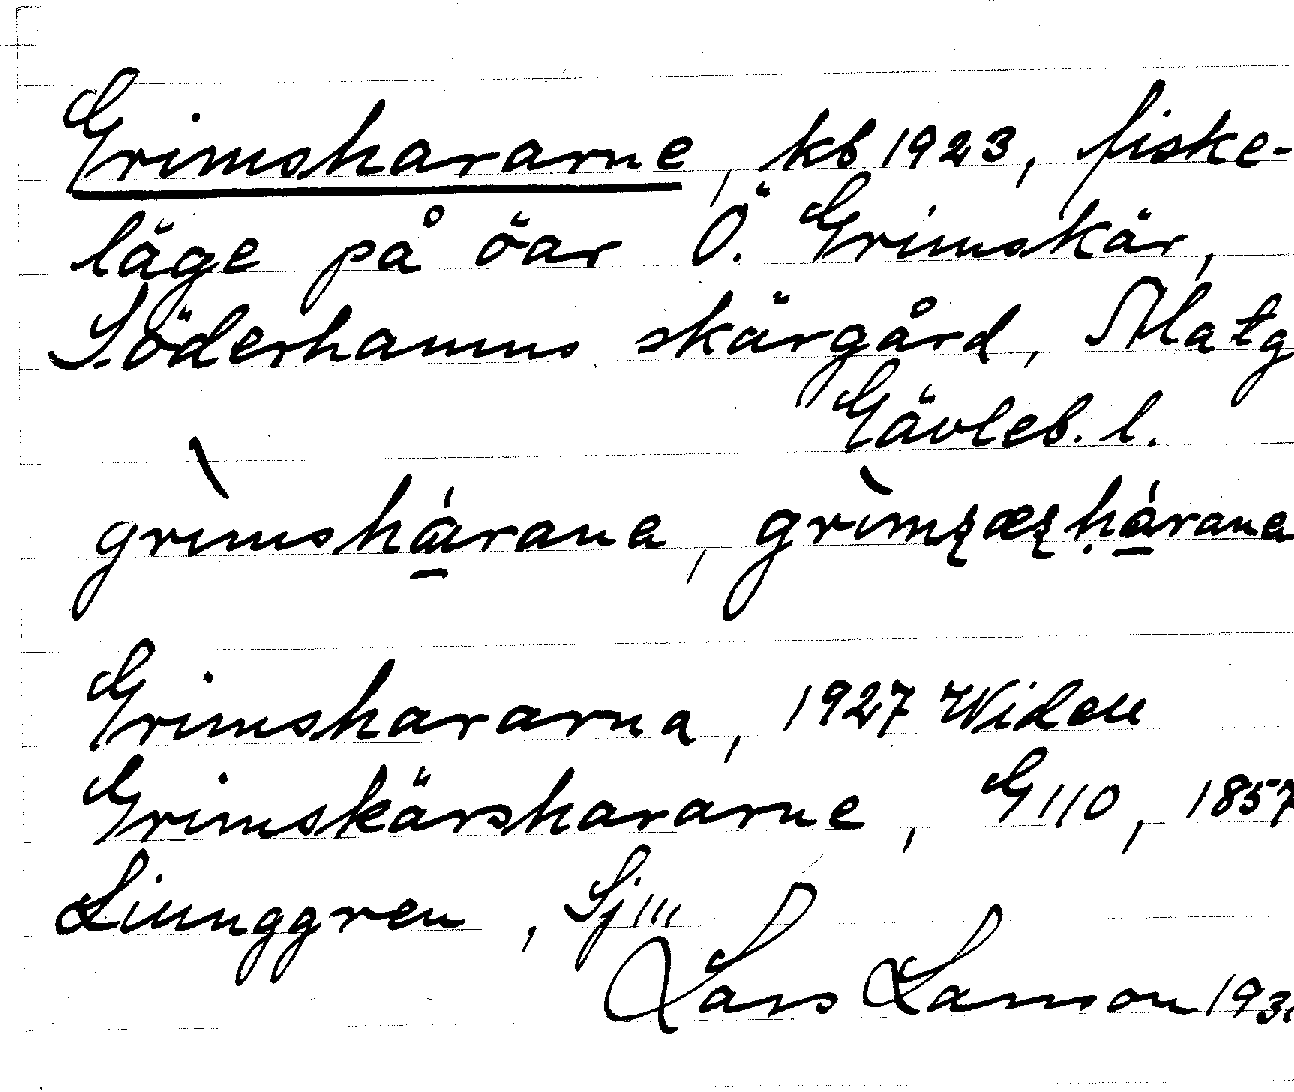 Grimshararne, kb 1923, fiske-
läge på öar Ö. Grimskär,
Söderhamns skärgård,
Gävleb. l.
grimshárana,
Grimshararna, 1927 Widén
Grimskärshararne, G110, 1857
Ljunggren, Sj III
Lars Larsson 193